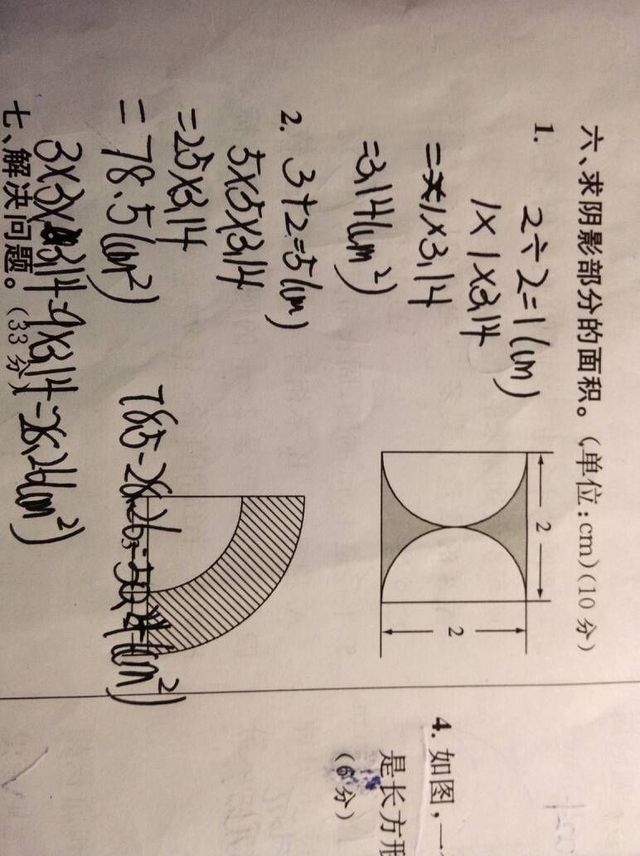 六、求阴影部分的面积。(单位:cm)(10分)
1.
2÷2=1(cm)
1×1×3.14
=1×3.14
=3.14(cm²)
2
2
2.
3+2=5(cm)
5×5×3.14
=25×3.14
=78.5(cm²)
3×3×3.14=9×3.14=28.26(cm²)
3
七、解决问题。(33分)
4. 如图,一
是长方形
(6分)